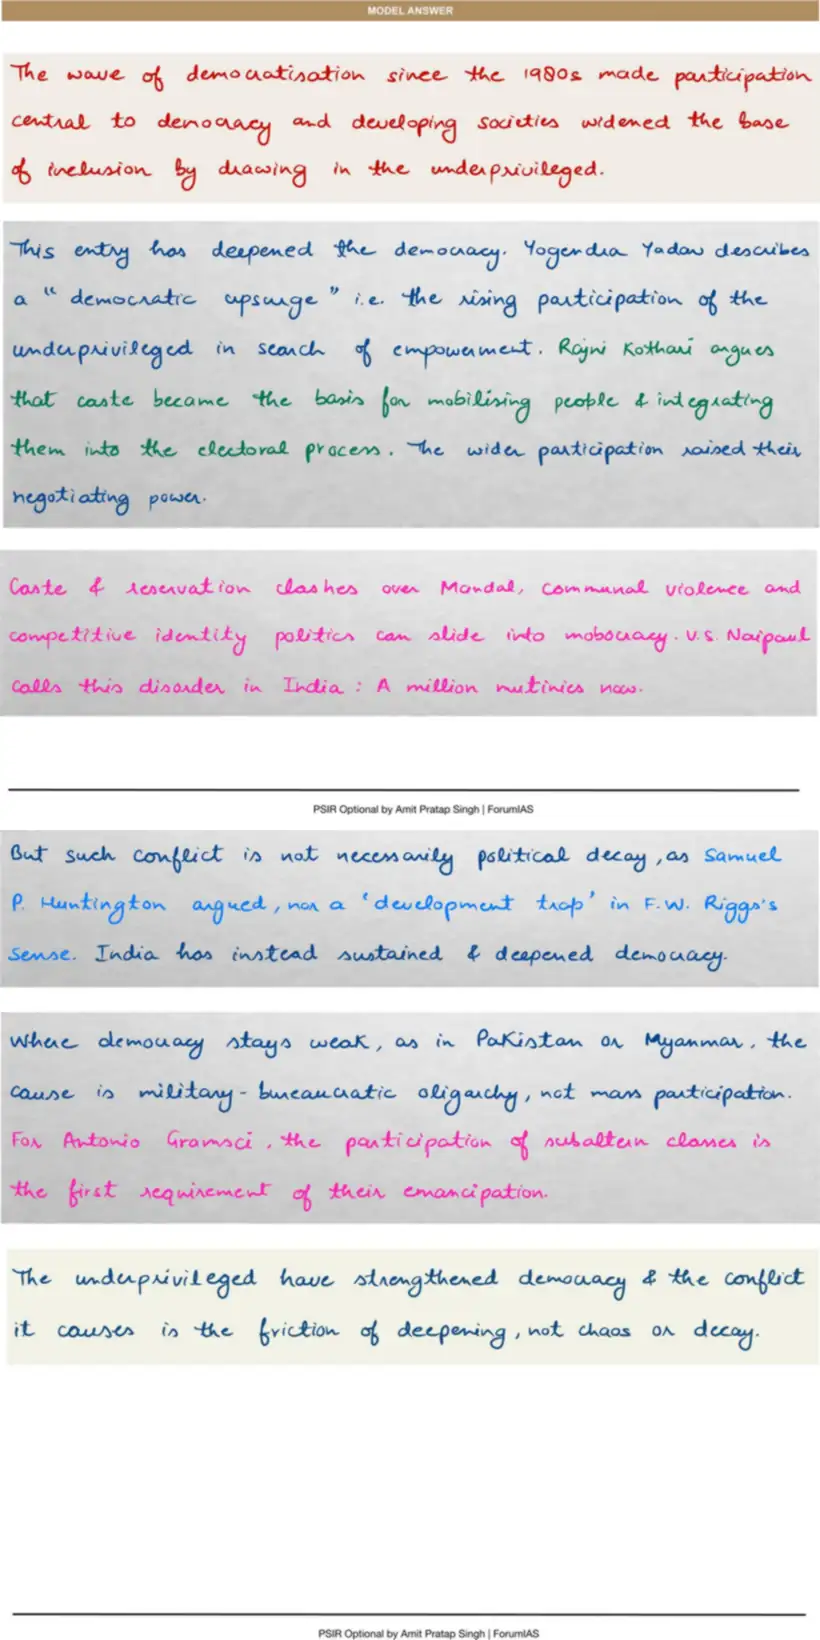 MODEL ANSWER
The wave of democratisation since the 1980s made participation
central to democracy and developing societies widened the base
of inclusion by drawing in the underprivileged.
This entry has deepened the democracy. Yogendra Yadav describes
a "democratic upsurge" i.e. the rising participation of the
underprivileged in search of empowerment. Rajni Kothari argues
that caste became the basis for mobilising people & integrating
them into the electoral process. The wider participation raised their
negotiating power.
Caste & reservation clashes over Mandal, communal violence and
competitive identity politics can slide into mobocracy. V.S. Naipaul
calls this disorder in India : A million mutinies now.
PSIR Optional by Amit Pratap Singh | ForumIAS
But such conflict is not necessarily political decay, as Samuel
P. Huntington argued, nor a 'development trap' in F.W. Riggs's
sense. India has instead sustained & deepened democracy.
Where democracy stays weak, as in Pakistan or Myanmar, the
cause is military-bureaucratic oligarchy, not mass participation.
For Antonio Gramsci, the participation of subaltern classes is
the first requirement of their emancipation.
The underprivileged have strengthened democracy & the conflict
it causes is the friction of deepening, not chaos or decay.
PSIR Optional by Amit Pratap Singh | ForumIAS